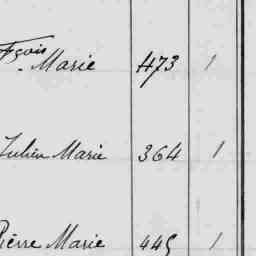 Fçois Marie 473 1
Julien Marie 364 1
Pierre Marie 445 1